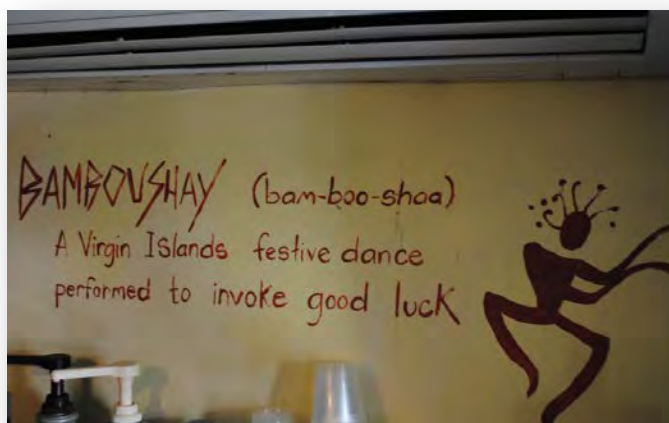 BAMBOUSHAY (bam-boo-shaa)
A Virgin Islands festive dance
performed to invoke good luck